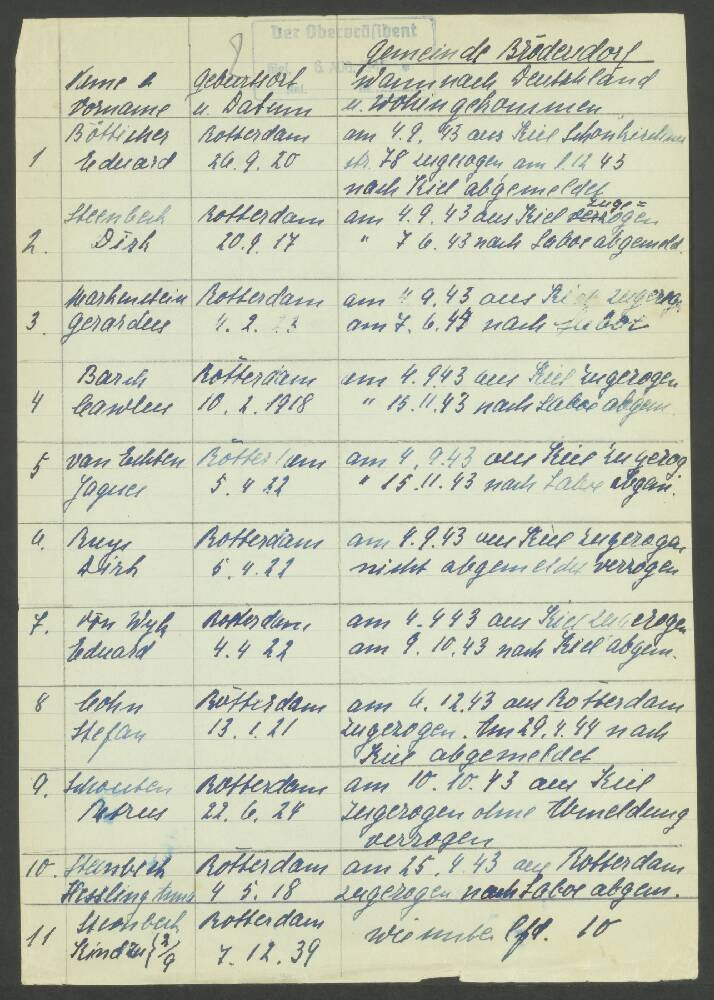 Der Oberpräsident
Gemeinde Brodersdorf
Name u. Geburtsort Wann nach Deutschland
Vorname u. Datum u. wohin gekommen
Bötticher Rotterdam am 4.9.43 aus Kiel
1 Eduard 26.9.20 str. 78 zugezogen am 1.12.43
nach Kiel abgemeldet
Steenbeck Rotterdam am 4.9.43 aus Kiel zuge=
2. Dirk 20.9.17 " 7 6.43 nach Laboe abgemeld.
Rotterdam am 4 9.43 aus Kiel zugezog.
3. Gerardus 4.2. am 7.6.43 nach Laboe
Rotterdam am 4.9.43 aus Kiel zugezogen
4 10.2.1918 " 15.11.43 nach Laboe abgem.
5 van Echten Rotterdam am 4.9.43 aus Kiel zugezog.
Jaques 5.4 22 " 15.11.43 nach Laboe abgem.
6. Ruys Rotterdam am 4.9.43 aus Kiel zugezogen
Dirk 5.4.22 nicht abgemeldet verzogen
7. von Wyk Rotterdam am 4.9.43 aus Kiel zugezogen
Eduard 4.4 22 am 9.10.43 nach Kiel abgem.
8 Cohn Rotterdam am 6.12.43 aus Rotterdam
Stefan 13.1.21 zugezogen. Am 29.4.44 nach
Kiel abgemeldet
9. Schouten Rotterdam am 10.10.43 aus Kiel
Petrus 22.6.24 zugezogen ohne Abmeldung
verzogen
10. Steenbeck Rotterdam am 25.4.43 aus Rotterdam
Wessling 4 5.18 zugezogen nach Laboe abgem.
Steenbeck Rotterdam wie unter lfd. 10
11 Kind zu 2/9 7.12.39